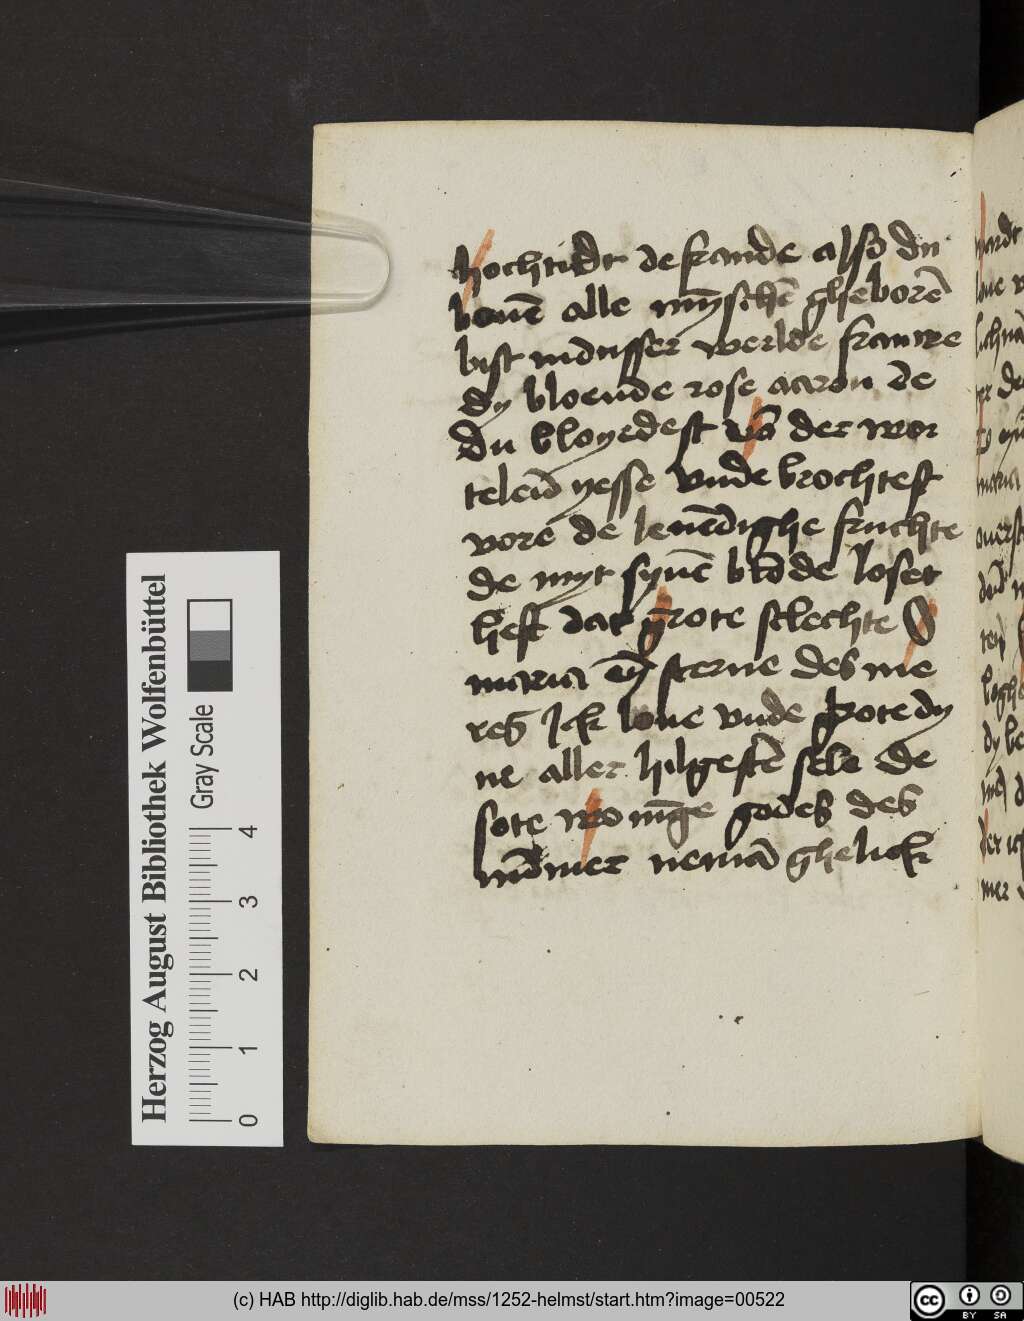 hochtidt de frande also du
bouē alle mȳschē gheborē
bist in dusser werlde frauwe
dy bloende rose aaron de
du bloyedest vā der wor
telen yesse vnde brochtest
vore de leuēdighe fruchte
de myt synē blode loset
heft dat grote sclechte O
maria eȳ sterne des me
res Jck loue vnde grote dy
ne aller hilgestē sele de
sote woninge godes des
nūmer nemād ghelick
Herzog August Bibliothek Wolfenbüttel
Gray Scale
0 1 2 3 4
(c) HAB http://diglib.hab.de/mss/1252-helmst/start.htm?image=00522
cc BY SA